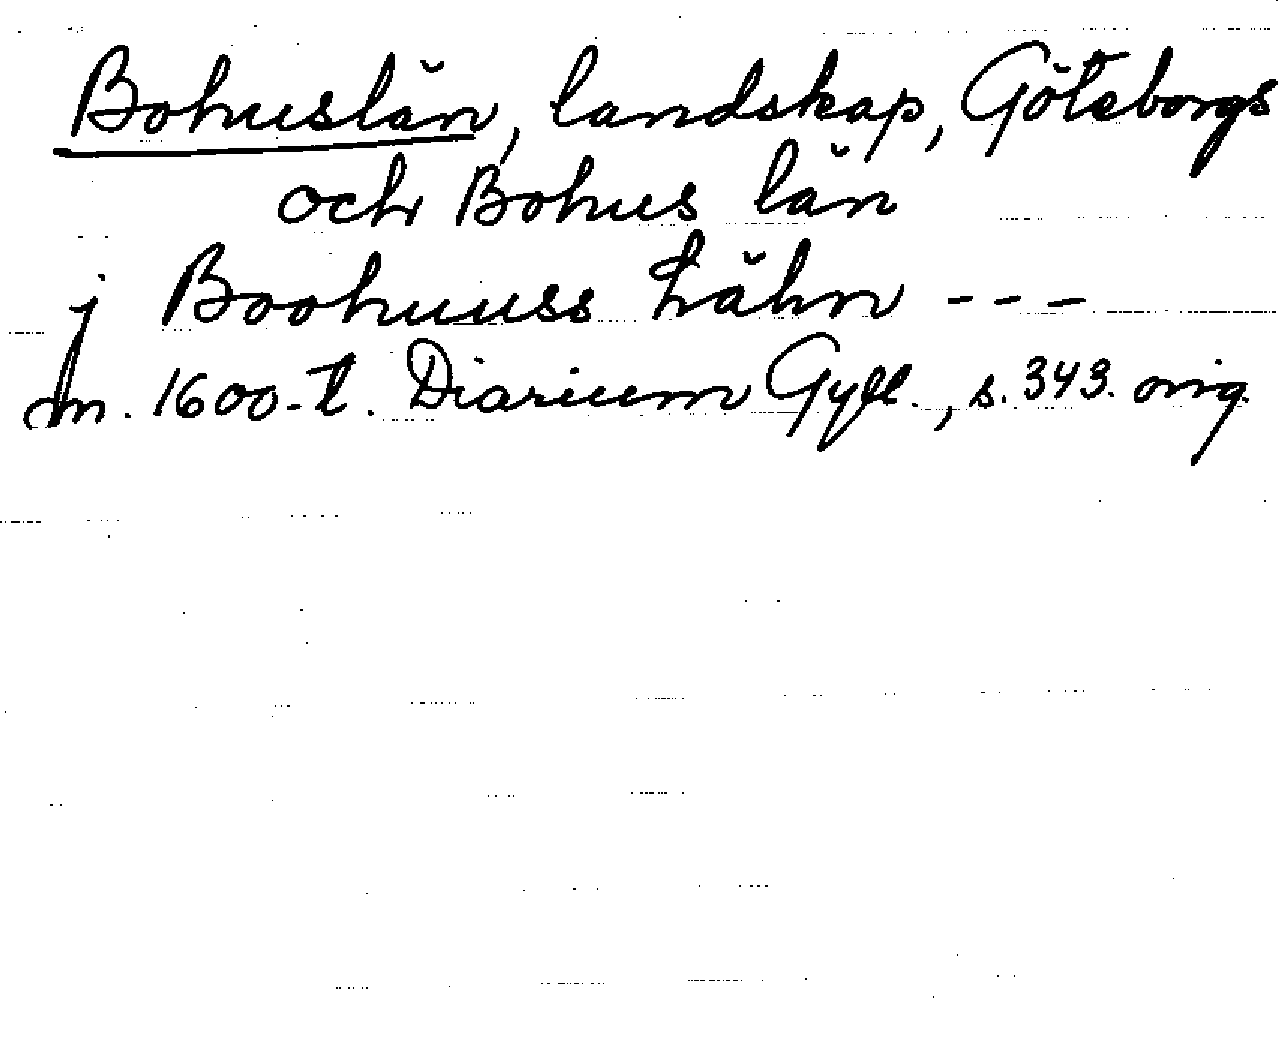 Bohuslän, landskap, Göteborgs
och Bohus län
j Boohuuss Lähn ---
m. 1600-t. Diarium Gyll., s. 343. orig.